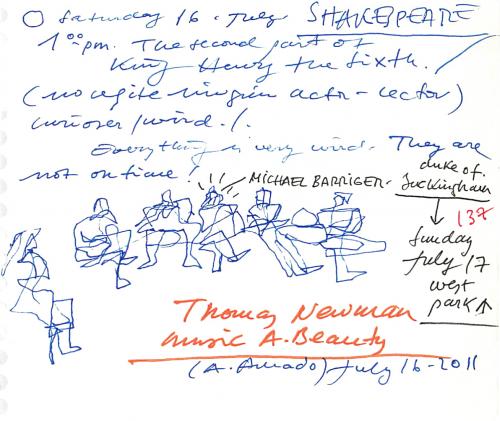 Saturday 16 . July SHAKESPEARE
1°° pm. The second part of
King Henry the Sixth. /
(no actor - lector)
curioser / wind . / .
Everything is very wind. They are
not on time!
MICHAEL BARRIGER - duke of.
Buckingham
137
Sunday
July 17
west
park
Thomas Newman
music A. Beauty
(A. Amado) July 16 - 2011